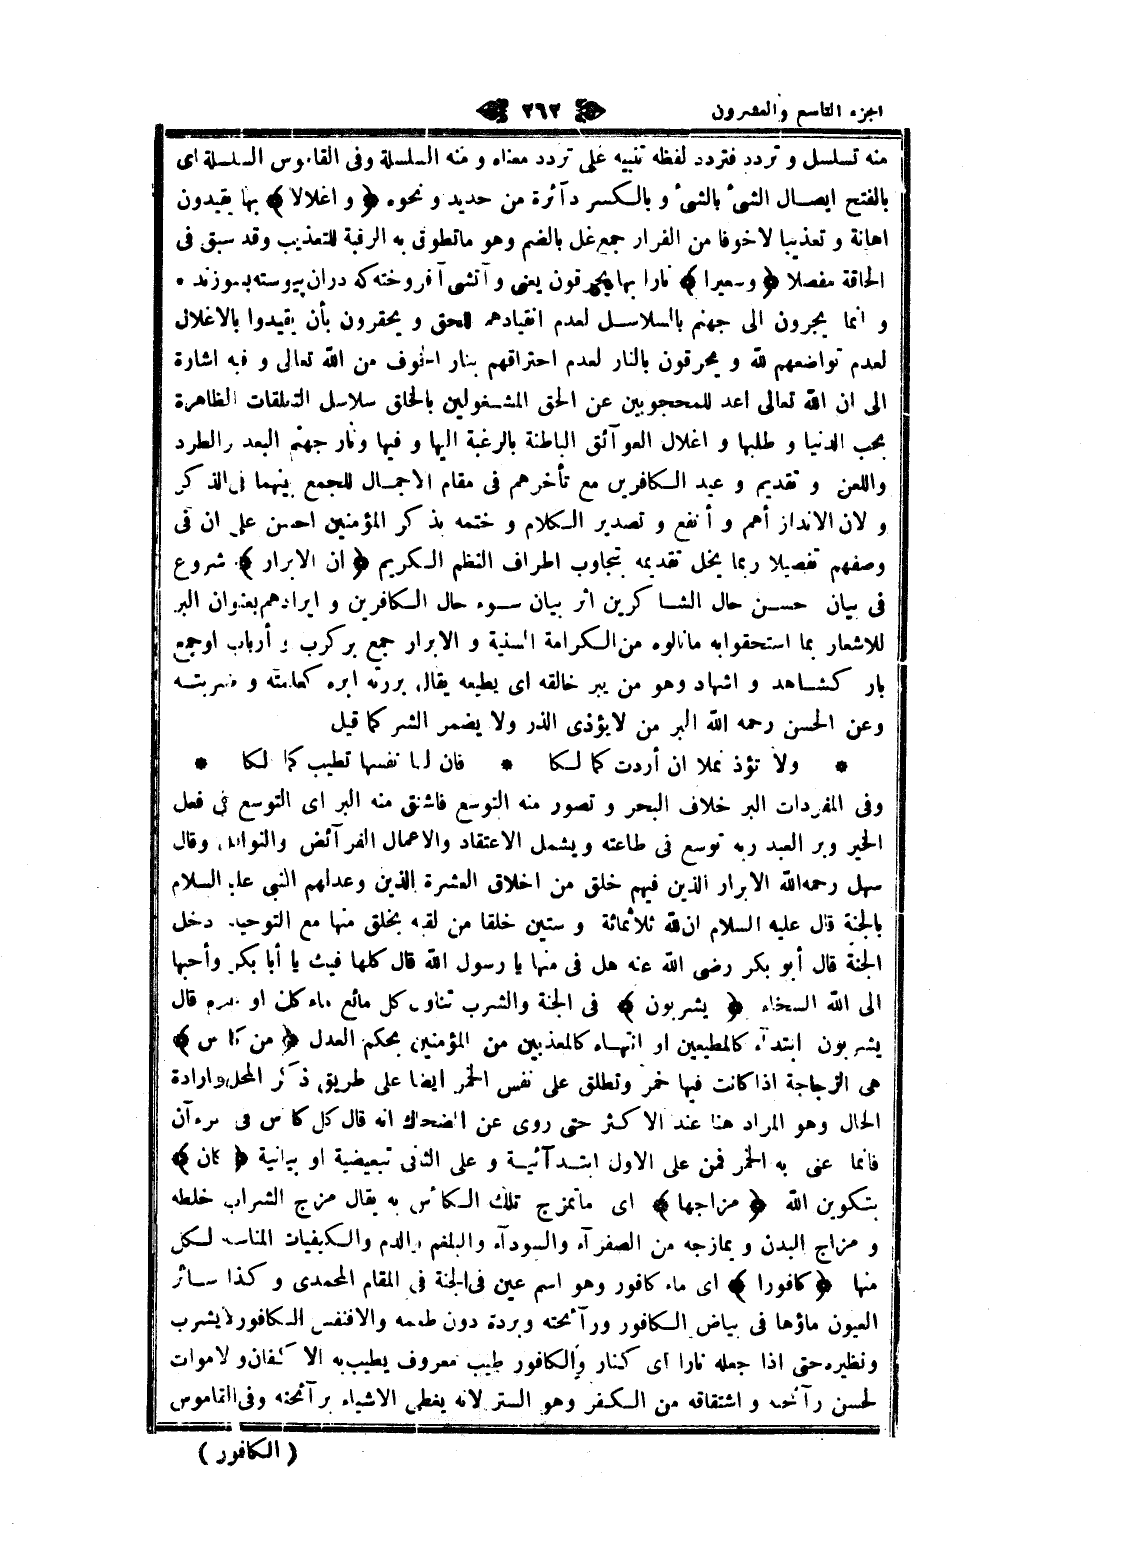 الجزء التاسع والعشرون ٢٦٢
منه تسلسل و تردد فتردد لفظه تنبيه على تردد معناه و منه السلسلة وفى القاموس السلسلة اى
بالفتح ايصال الشئ بالشئ و بالكسر دآئرة من حديد و نحوه ﴿ و اغلالا ﴾ بها يقيدون
اهانة و تعذيبا لاخوفا من الفرار جمع غل بالضم وهو ماتطوق به الرقبة للتعذيب وقد سبق فى
الحاقة مفصلا ﴿ وسعيرا ﴾ نارا بها يحرقون يعنى و آتشى آفروخته كه دران پيوسته بسوزند *
و انما يجرون الى جهنم بالسلاسل لعدم انقيادهم للحق و يحقرون بأن يقيدوا بالاغلال
لعدم تواضعهم لله و يحرقون بالنار لعدم احتراقهم بنار الخوف من الله تعالى و فيه اشارة
الى ان الله تعالى اعد للمحجوبين عن الحق المشغولين بالخلق سلاسل التعلقات الظاهرة
بحب الدنيا و طلبها و اغلال العوآئق الباطنة بالرغبة اليها و فيها ونار جهنم البعد والطرد
واللعن و تقديم و عيد الكافرين مع تأخرهم فى مقام الاجمال للجمع بينهما فى الذكر
و لان الانذار أهم و أنفع و تصدير الكلام و ختمه بذكر المؤمنين احسن على ان فى
وصفهم تفصيلا ربما يخل تقديمه بتجاوب اطراف النظم الكريم ﴿ ان الابرار ﴾ شروع
فى بيان حسن حال الشاكرين اثر بيان سوء حال الكافرين و ايرادهم بعنوان البر
للاشعار بما استحقوابه مانالوه من الكرامة السنية و الابرار جمع بر كرب و أرباب اوجمع
بار كشاهد و اشهاد وهو من يبر خالقه اى يطيعه يقال بررته ابره كعلمته و ضربته
وعن الحسن رحمه الله البر من لايؤذى الذر ولا يضمر الشر كما قيل
* ولا تؤذ نملا ان أردت كمالكا * فان لها نفسها تطيب كمالكا *
وفى المفردات البر خلاف البحر و تصور منه التوسع فاشتق منه البر اى التوسع فى فعل
الخير وبر العبد ربه توسع فى طاعته و يشمل الاعتقاد والاعمال الفرآئض والنوافل وقال
سهل رحمه الله الابرار الذين فيهم خلق من اخلاق العشرة الذين وعدلهم النبى عليه السلام
بالجنة قال عليه السلام ان لله ثلاثمائة و ستين خلقا من لقيه بخلق منها مع التوحيد دخل
الجنة قال أبو بكر رضى الله عنه هل فى منها يا رسول الله قال كلها فيك يا أبا بكر وأحبها
الى الله السخاء ﴿ يشربون ﴾ فى الجنة والشرب تناول كل مائع ماء كان او غيره قال
يشربون ابتدآء كالمطيعين او انتهاء كالمعذبين من المؤمنين بحكم العدل ﴿ من كاس ﴾
هى الزجاجة اذا كانت فيها خمر وتطلق على نفس الخمر ايضا على طريق ذكر المحل وارادة
الحال وهو المراد هنا عند الاكثر حتى روى عن الضحاك انه قال كل كاس فى القرءآن
فانما عنى به الخمر فمن على الاول ابتدآئية و على الثانى تبعيضية او بيانية ﴿ كان ﴾
بتكوين الله ﴿ مزاجها ﴾ اى ماتمزج تلك الكأس به يقال مزج الشراب خلطه
و مزاج البدن و يمازجه من الصفرآء والسودآء والبلغم والدم والكيفيات المناسبة لكل
منها ﴿ كافورا ﴾ اى ماء كافور وهو اسم عين فى الجنة فى المقام المحمدى و كذا سائر
العيون ماؤها فى بياض الكافور ورآئحته وبردة دون طعمه والافنفس الكافور لايشرب
ونظيره حتى اذا جعله نارا اى كنار والكافور طيب معروف يطيب به الاكفان و لاموات
لحسن رآئحته و اشتقاقه من الكفر وهو الستر لانه يغطى الاشياء برآئحته وفى القاموس
( الكافور )